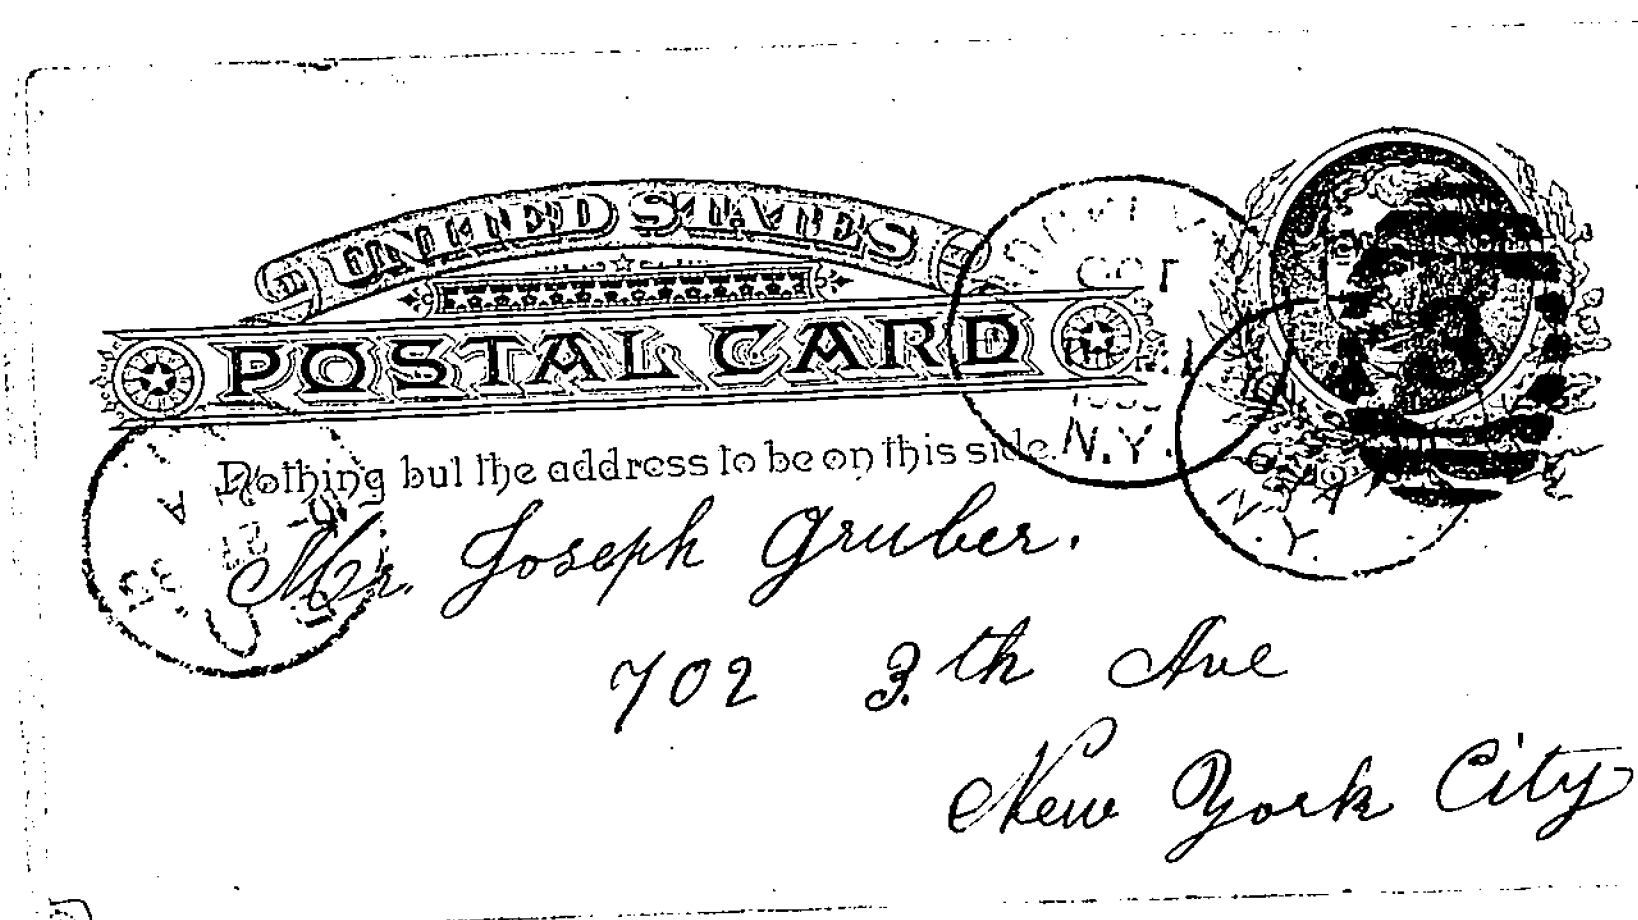 UNITED STATES
POSTAL CARD
Nothing but the address to be on this side.
OCT
N.Y.
N.Y.
Mr. Joseph Gruber.
702 3.th Ave
New York City